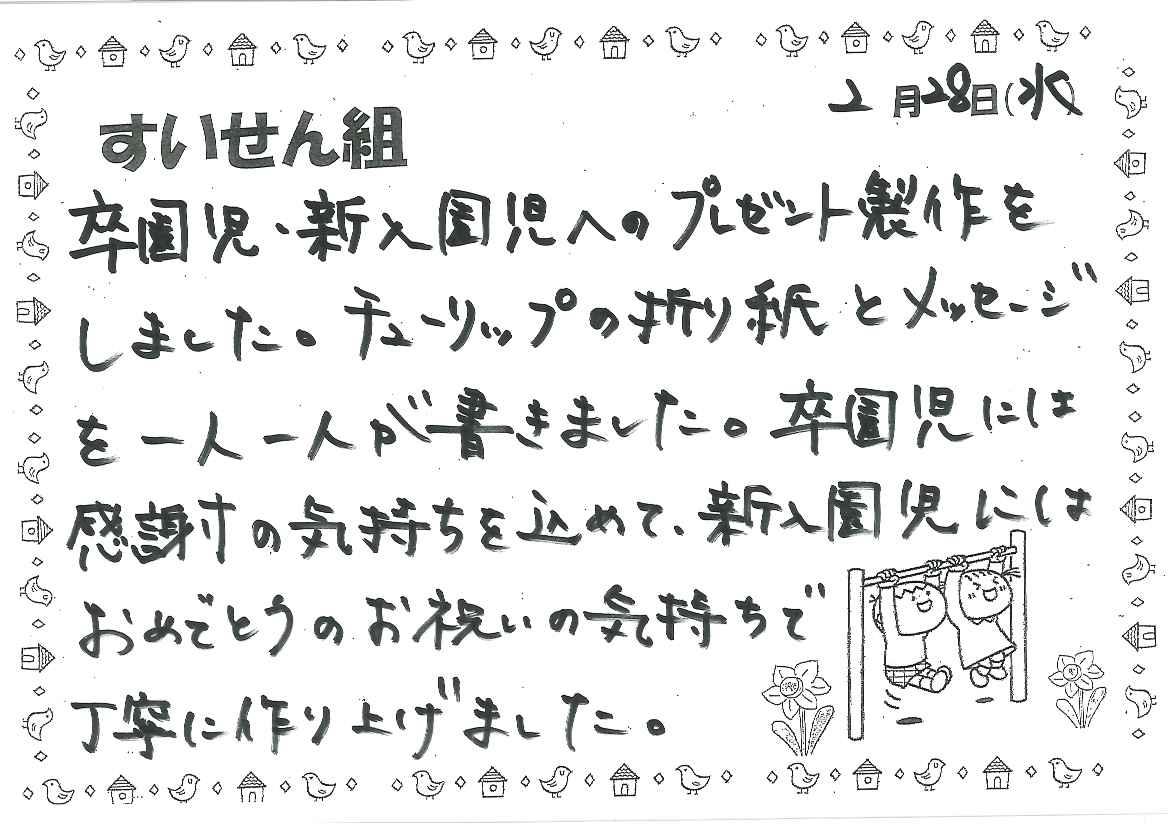 2月28日(水)
すいせん組
卒園児・新入園児へのプレゼント製作を
しました。チューリップの折り紙とメッセージ
を一人一人が書きました。卒園児には
感謝の気持ちを込めて、新入園児には
おめでとうのお祝いの気持ちで
丁寧に作り上げました。